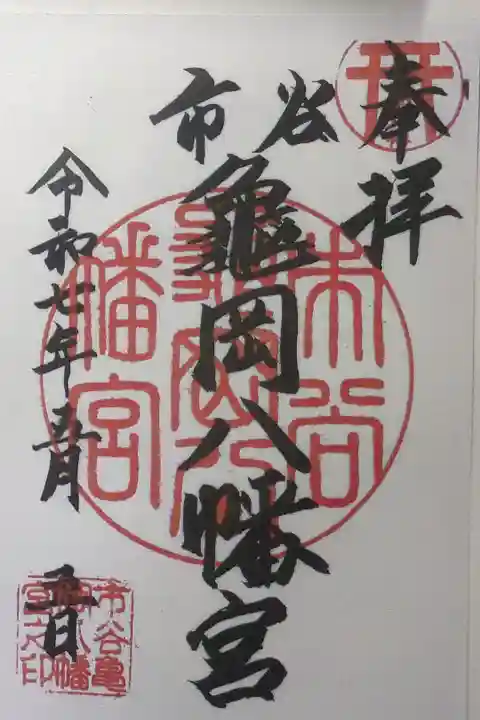 奉拝
市谷
龜岡八幡宮
令和七年五月 日
市谷
龜岡八
幡宮
市谷亀
岡八幡
宮之印